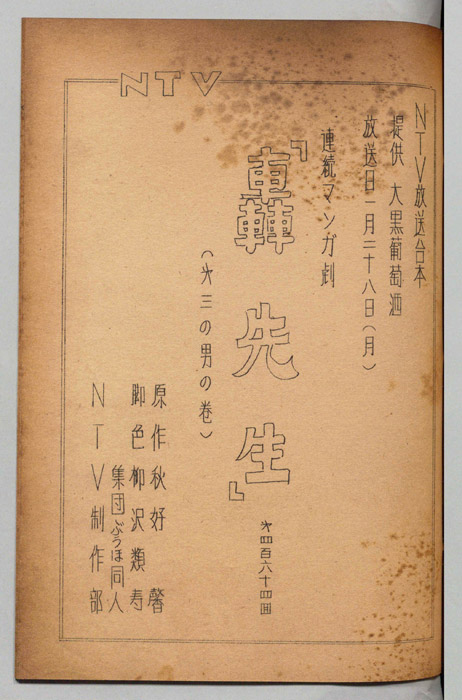 NTV
NTV放送台本
提供 大黒葡萄酒
放送日一月二十八日(月)
連続マンガ劇
『轟先生』
才四百六十四回
(才三の男の巻)
原作 秋好馨
脚色 柳沢類寿
集団ぶうほ同人
NTV制作部